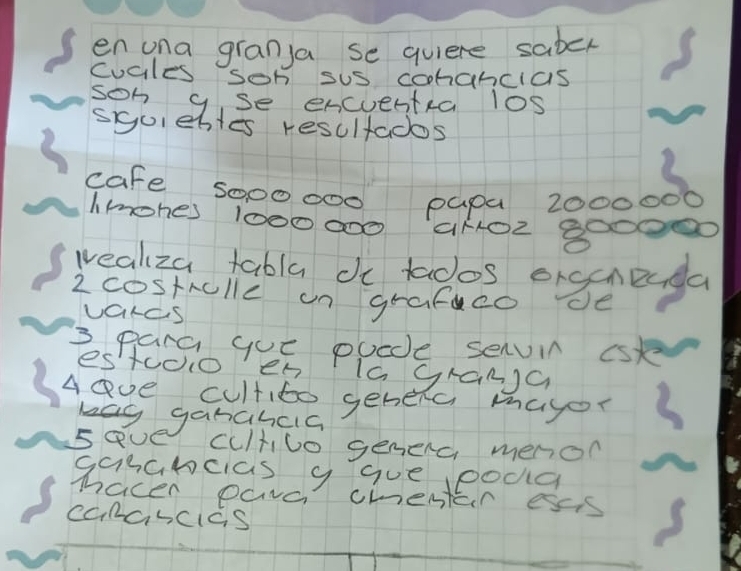 en una granja se quiere saber
cuales son sus cahancias
son y se encuentra los
siguientes resultados
cafe 5000 000 papa 2000000
limones 1000 000 arroz 800000
realiza tabla de tados organizada
2 costrulle un grafuco de
varas
3 para que puede servir este
estudio en la granja
4 que cultibo genera mayor
hay ganancia
5 que cultivo genera menor
ganancias y que podia
hacer para omentar esas
cahancias